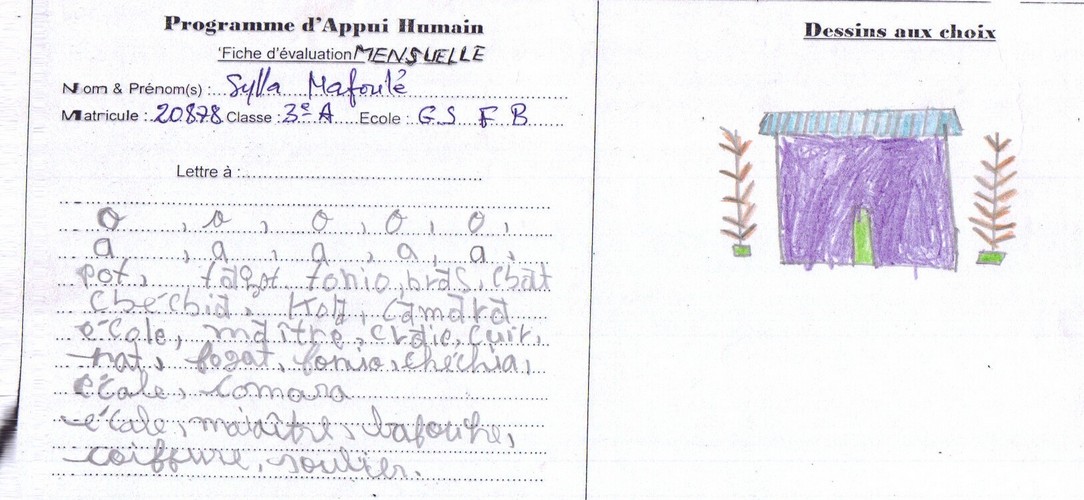 Programme d'Appui Humain
'Fiche d'évaluation MENSUELLE
Nom & Prénom(s) : Sylla Mafoulé
Matricule : 20878 Classe : 3e A Ecole : G S F B
Lettre à :
o , o , o , o , o ,
a , a , a , a , a ,
pot, fagot, fonio, bras, chat
chéchia, Kola, camara
école, maître, craie, cuir,
fagot, fonio, chéchia,
écale, Comara
écale, maiaître,
coiffure, soulier.
Dessins aux choix